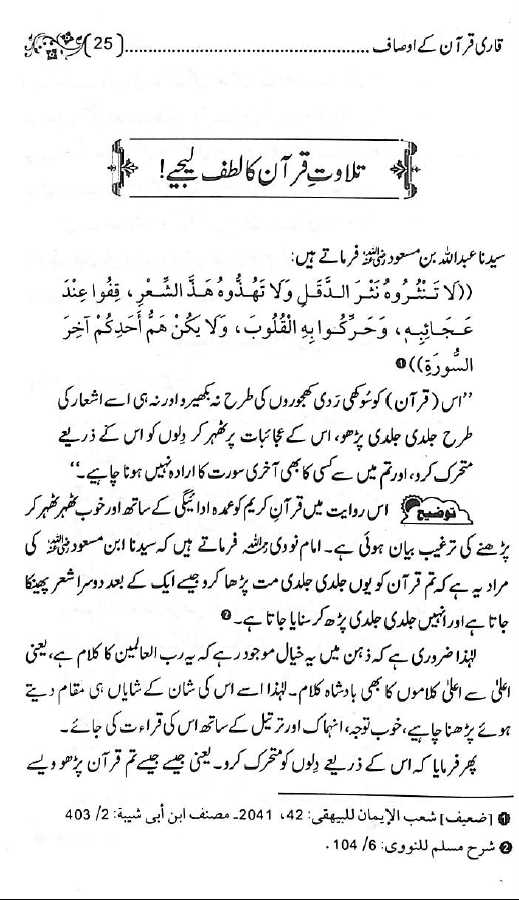 قاری قرآن کے اوصاف ................................................ (25)
تلاوتِ قرآن کا لطف لیجیے!
سیدنا عبداللہ بن مسعود رضی اللہ عنہ فرماتے ہیں:
((لَا تَنْثُرُوهُ نَثْرَ الدَّقَلِ وَلَا تَهُذُّوهُ هَذَّ الشِّعْرِ، قِفُوا عِنْدَ
عَجَائِبِهِ، وَحَرِّكُوا بِهِ الْقُلُوبَ، وَلَا يَكُنْ هَمُّ أَحَدِكُمْ آخِرَ
السُّورَةِ)) ❶
’’اس (قرآن) کو سُوکھی رَدی کھجوروں کی طرح نہ بکھیرو اور نہ ہی اسے اشعار کی
طرح جلدی جلدی پڑھو، اس کے عجائبات پر ٹھہر کر دِلوں کو اس کے ذریعے
متحرک کرو، اور تم میں سے کسی کا بھی آخری سورت کا ارادہ نہیں ہونا چاہیے۔‘‘
توضیح اس روایت میں قرآنِ کریم کو عمدہ ادائیگی کے ساتھ اور خوب ٹھہر ٹھہر کر
پڑھنے کی ترغیب بیان ہوئی ہے۔ امام نووی رحمہ اللہ فرماتے ہیں کہ سیدنا ابن مسعود رضی اللہ عنہ کی
مراد یہ ہے کہ تم قرآن کو یوں جلدی جلدی مت پڑھا کرو جیسے ایک کے بعد دوسرا شعر پھینکا
جاتا ہے اور انہیں جلدی جلدی پڑھ کر سنایا جاتا ہے۔ ❷
لہٰذا ضروری ہے کہ ذہن میں یہ خیال موجود رہے کہ یہ رب العالمین کا کلام ہے، یعنی
اعلیٰ سے اعلیٰ کلاموں کا بھی بادشاہ کلام۔ لہٰذا اسے اس کی شان کے شایاں ہی مقام دیتے
ہوئے پڑھنا چاہیے، خوب توجہ، انہماک اور ترتیل کے ساتھ اس کی قراءت کی جائے۔
پھر فرمایا کہ اس کے ذریعے دِلوں کو متحرک کرو۔ یعنی جیسے جیسے تم قرآن پڑھو ویسے
❶ [ضعیف] شعب الإیمان للبیهقی: 42، 2041۔ مصنف ابن أبی شیبة: 2/ 403
❷ شرح مسلم للنووی: 6/ 104 .